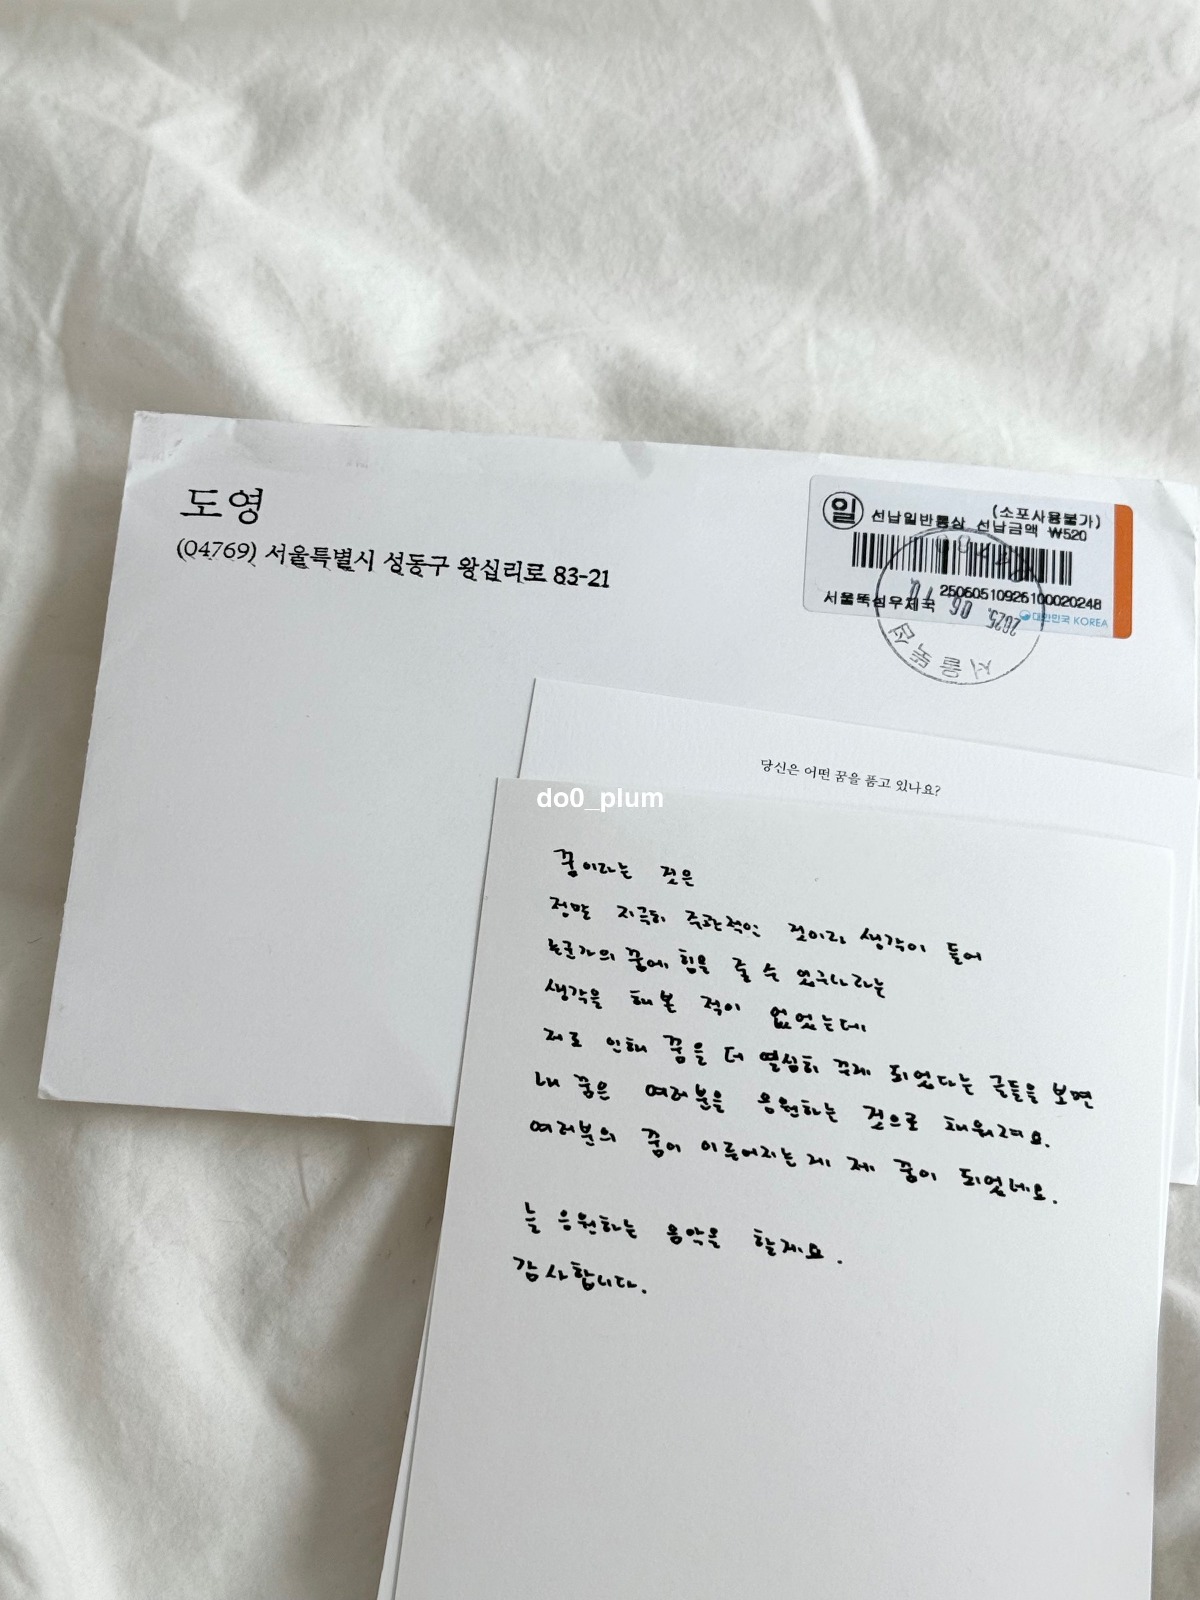 도영
(04769) 서울특별시 성동구 왕십리로 83-21
일
(소포사용불가)
선납일반통상 선납금액 ₩520
25060510926100020248
서울뚝섬우체국
대한민국 KOREA
2025. 06 10
서울뚝섬
당신은 어떤 꿈을 품고 있나요?
do0_plum
꿈이라는 것은
정말 지극히 주관적인 것이라 생각이 들어
누군가의 꿈에 힘을 줄 수 있구나라는
생각을 해본 적이 없었는데
저로 인해 꿈을 더 열심히 꾸게 되었다는 글들을 보면
내 꿈은 여러분을 응원하는 것으로 채워져요.
여러분의 꿈이 이루어지는게 제 꿈이 되었네요.
늘 응원하는 음악을 할게요.
감사합니다.